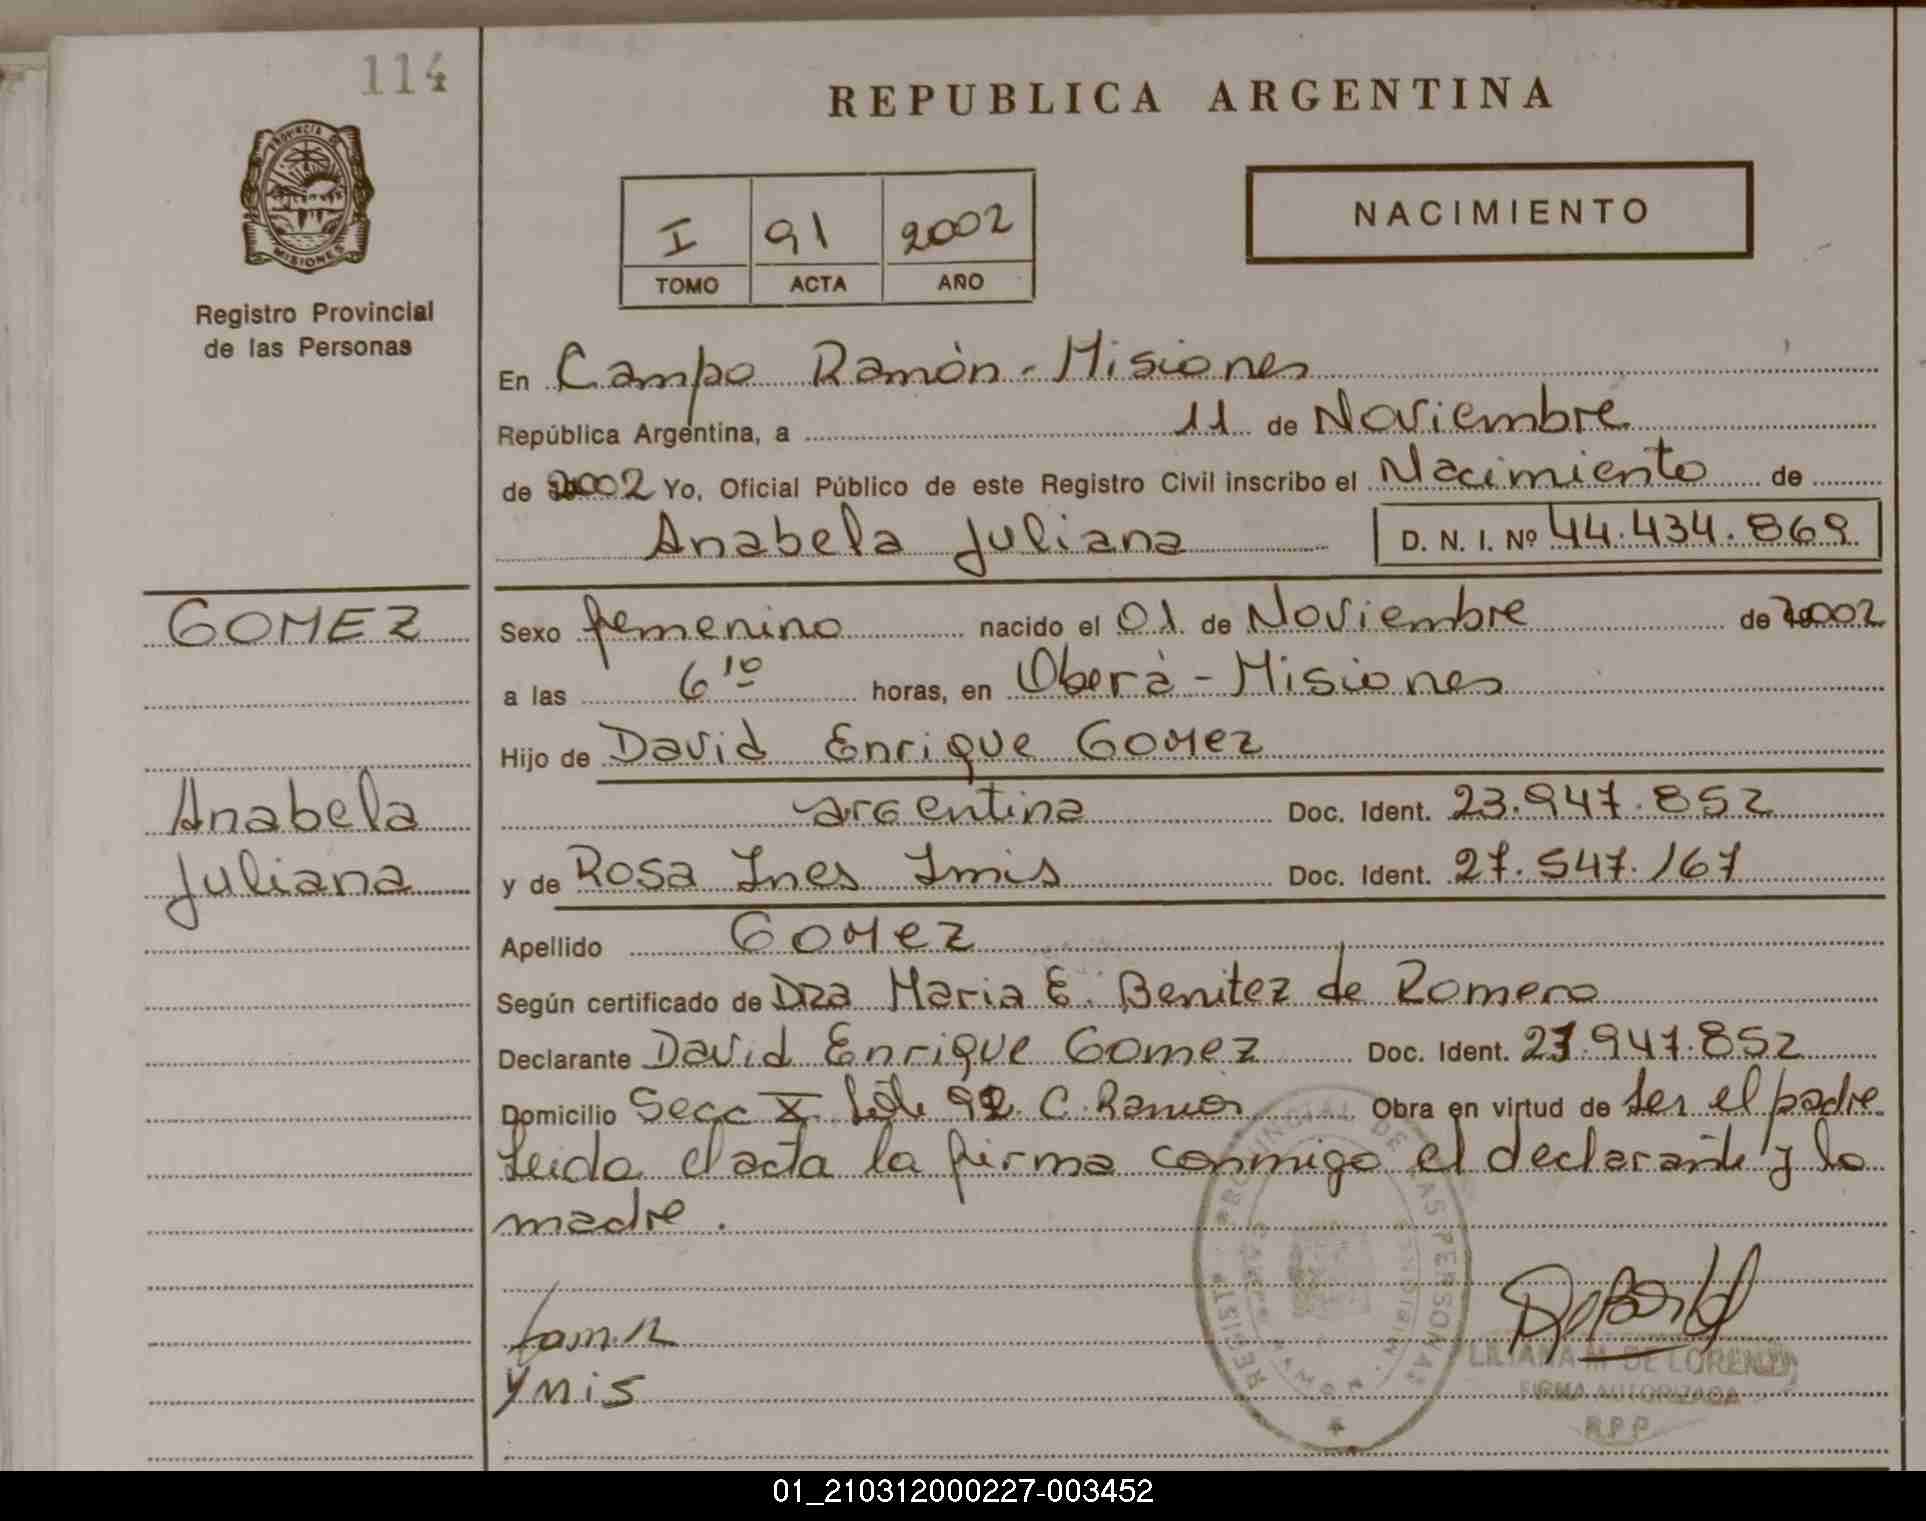 114
REPUBLICA ARGENTINA
PROVINCIA DE
MISIONES
Registro Provincial
de las Personas
I 91 2002
TOMO ACTA AÑO
NACIMIENTO
En Campo Ramón - Misiones
República Argentina, a 11 de Noviembre
de 2002 Yo, Oficial Público de este Registro Civil inscribo el Nacimiento de
Anabela Juliana D. N. I. Nº 44.434.869
GOMEZ
Sexo femenino nacido el 01 de Noviembre de 2002
a las 6 10 horas, en Oberá - Misiones
Hijo de David Enrique Gomez
Anabela
argentina Doc. Ident. 23.947.852
Juliana
y de Rosa Ines Imis Doc. Ident. 27.547.167
Apellido Gomez
Según certificado de Dra Maria E. Benitez de Romero
Declarante David Enrique Gomez Doc. Ident. 23.947.852
Domicilio Secc X Lote 92 C. Ramon Obra en virtud de ser el padre
Leida el acta la firma conmigo el declarante y la
madre.
REGIST PROVINCIAL DE LAS PERSONAS
MISIONES
Ynis
LILIANA M. DE LORENZI
FIRMA AUTORIZADA
R.P.P.
01_210312000227-003452